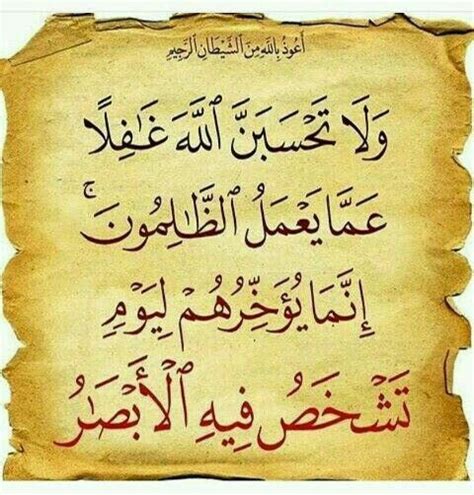 أعوذ بالله من الشيطان الرجيم
وَلَا تَحْسَبَنَّ ٱللَّهَ غَٰفِلًا
عَمَّا يَعْمَلُ ٱلظَّٰلِمُونَ ۚ
إِنَّمَا يُؤَخِّرُهُمْ لِيَوْمٍ
تَشْخَصُ فِيهِ ٱلْأَبْصَٰرُ